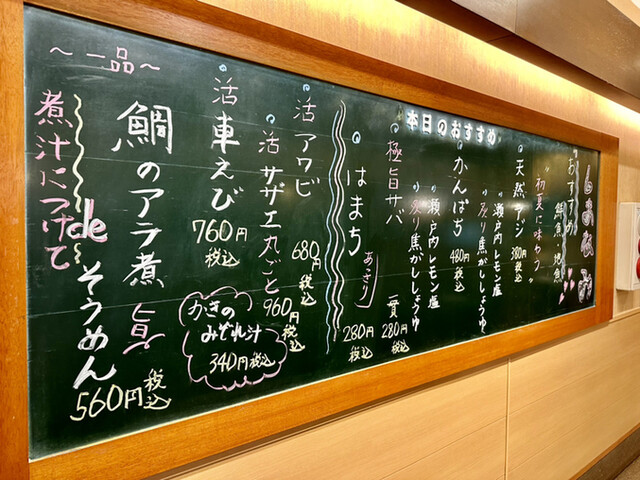 本日のおすすめ
おすすめ
鮮魚・地魚
〝初夏に味わう〟
天然アジ 380円税込
瀬戸内レモン塩
炙り焦がししょうゆ
かんぱち 480円税込
極旨サバ 一貫280円税込
瀬戸内レモン塩
炙り焦がししょうゆ
はまち あっさり 280円税込
活アワビ 680円税込
活サザエ丸ごと 960円税込
活車えび 760円税込
かきのみぞれ汁 340円税込
〜一品〜
鯛のアラ煮 旨
煮汁につけて
de そうめん 560円税込